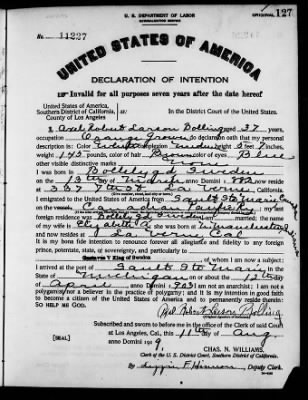 U. S. DEPARTMENT OF LABOR
NATURALIZATION SERVICE
ORIGINAL 127
No. 11227
UNITED STATES OF AMERICA
DECLARATION OF INTENTION
Invalid for all purposes seven years after the date hereof
United States of America,
Southern District of California,
County of Los Angeles
In the District Court of the United States.
I, Axel Robert Larson Bolling aged 37 years,
occupation Orange Grower, do declare on oath that my personal
description is: Color White, complexion, height 5 feet 7 inches,
weight 145 pounds, color of hair Brown, color of eyes Blue
other visible distinctive marks None
I was born in Sweden
on the 13th day of, anno Domini, now reside
at 337 7th St La Verne, California.
I emigrated to the United States of America from Sault Ste Marie
on the vessel Canadian, my last
foreign residence was Sweden; the name
of my wife is Elizabeth; she was born in
and now resides at La Verne Cal
It is my bona fide intention to renounce forever all allegiance and fidelity to any foreign
prince, potentate, state, or sovereignty, and particularly to
, of whom I am now a subject:
I arrived at the port of Sault Ste Marie, in the
State of Michigan, on or about the day
of April, anno Domini; I am not an anarchist; I am not a
polygamist nor a believer in the practice of polygamy; and it is my intention in good faith
to become a citizen of the United States of America and to permanently reside therein:
SO HELP ME GOD.
Axel Robert Larson Bolling
Subscribed and sworn to before me in the office of the Clerk of said Court
at Los Angeles, Cal., this 11th day of Aug
anno Domini 1919.
[SEAL]
CHAS. N. WILLIAMS,
Clerk of the U. S. District Court, Southern District of California.
By, Deputy Clerk.